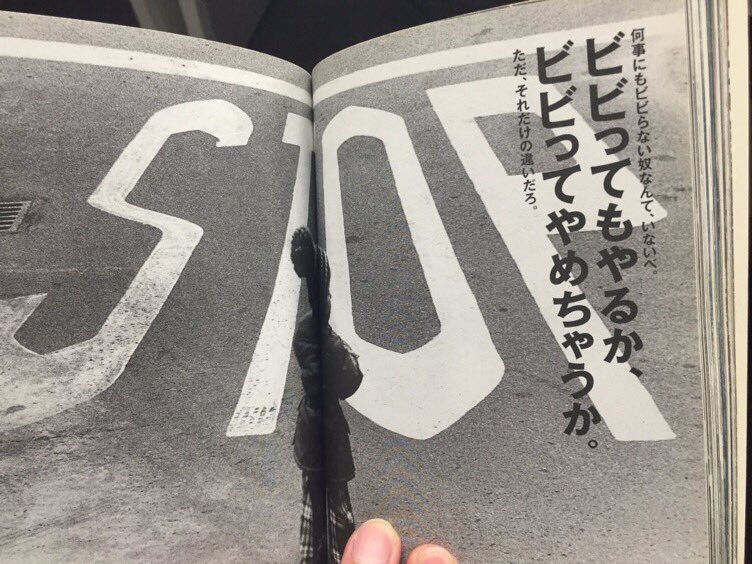 何事にもビビらない奴なんて、いないべ。
ビビってもやるか、
ビビってやめちゃうか。
ただ、それだけの違いだろ。
STOP